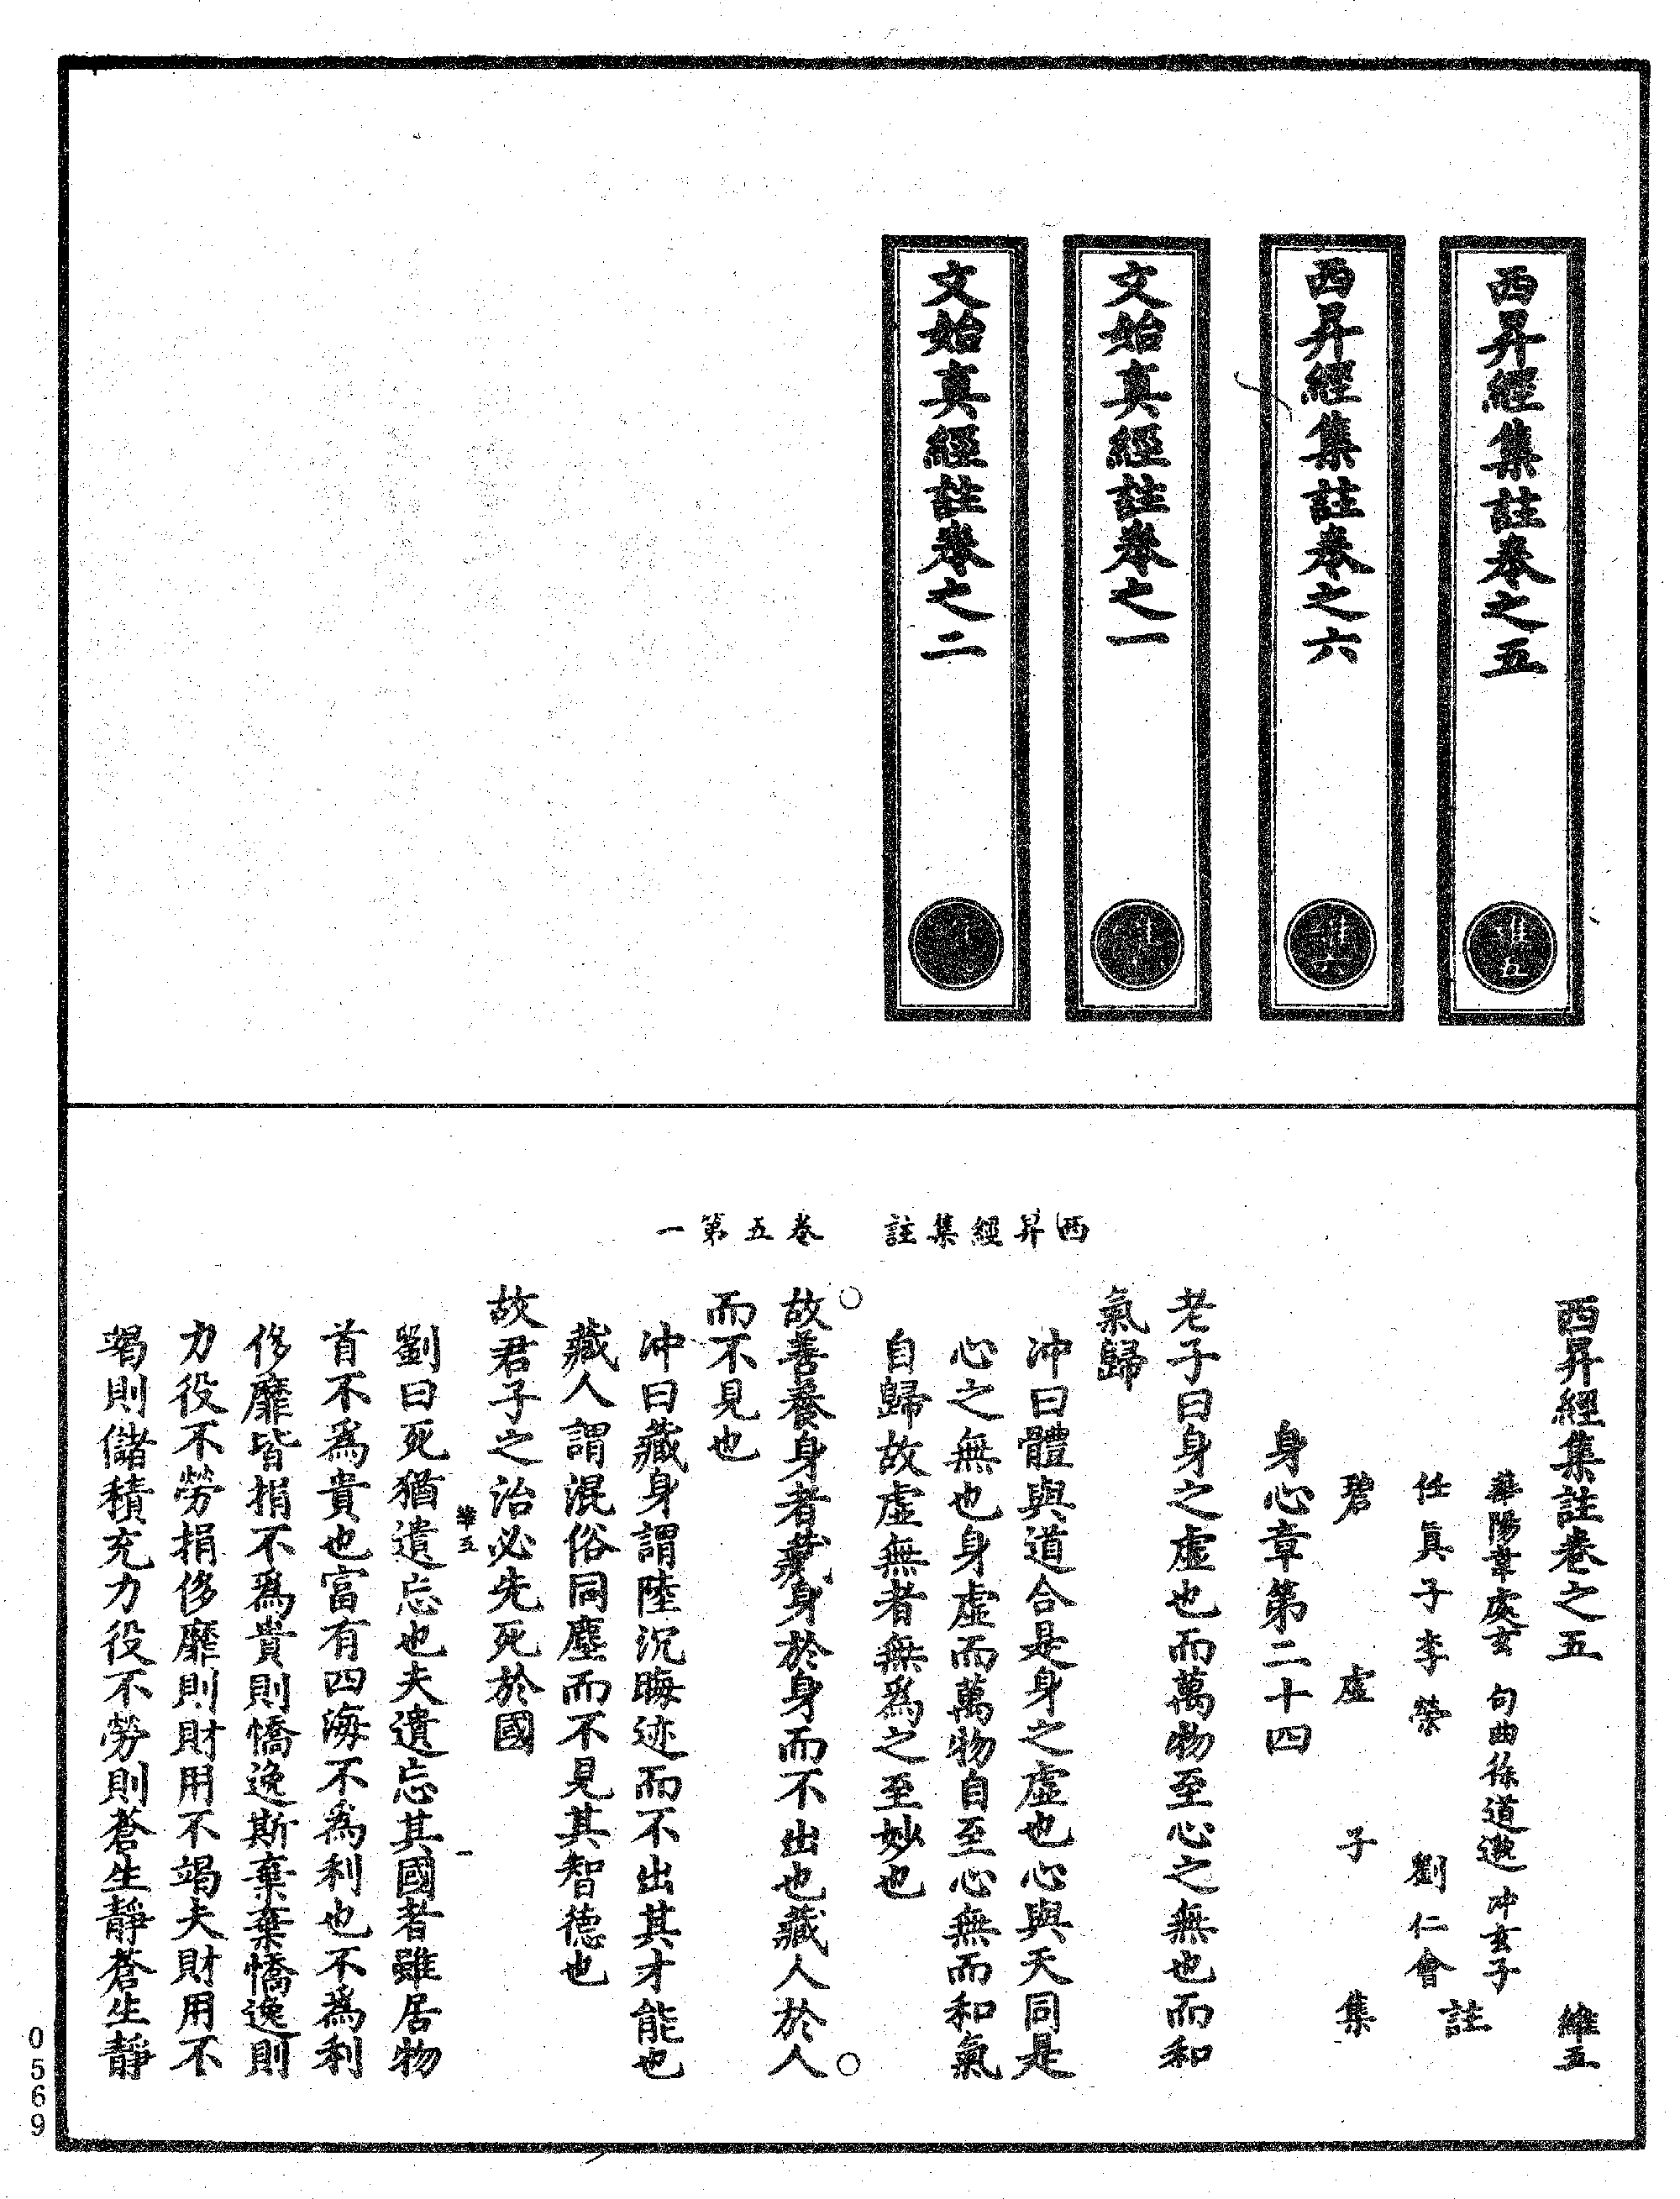 西昇經集註卷之五
維五
西昇經集註卷之六
維六
文始真經註卷之一
文始真經註卷之二
西昇經集註　卷五第一
西昇經集註卷之五　維五
華陽韋處玄　句曲徐道邈　冲玄子
任真子李榮　劉仁會　註
碧虛子　集
身心章第二十四
老子曰身之虛也而萬物至心之無也而和
氣歸
冲曰體與道合是身之虛也心與天同是
心之無也身虛而萬物自至心無而和氣
自歸故虛無者無為之至妙也
故善養身者藏身於身而不出也藏人於人
而不見也
冲曰藏身謂陸沉晦迹而不出其才能也
藏人謂混俗同塵而不見其智德也
故君子之治必先死於國
維五　一
劉曰死猶遺忘也夫遺忘其國者雖居物
首不為貴也富有四海不為利也不為利
侈靡皆捐不為貴則憍逸斯棄棄憍逸則
力役不勞捐侈靡則財用不竭夫財用不
竭則儲積充力役不勞則蒼生靜蒼生靜
0569